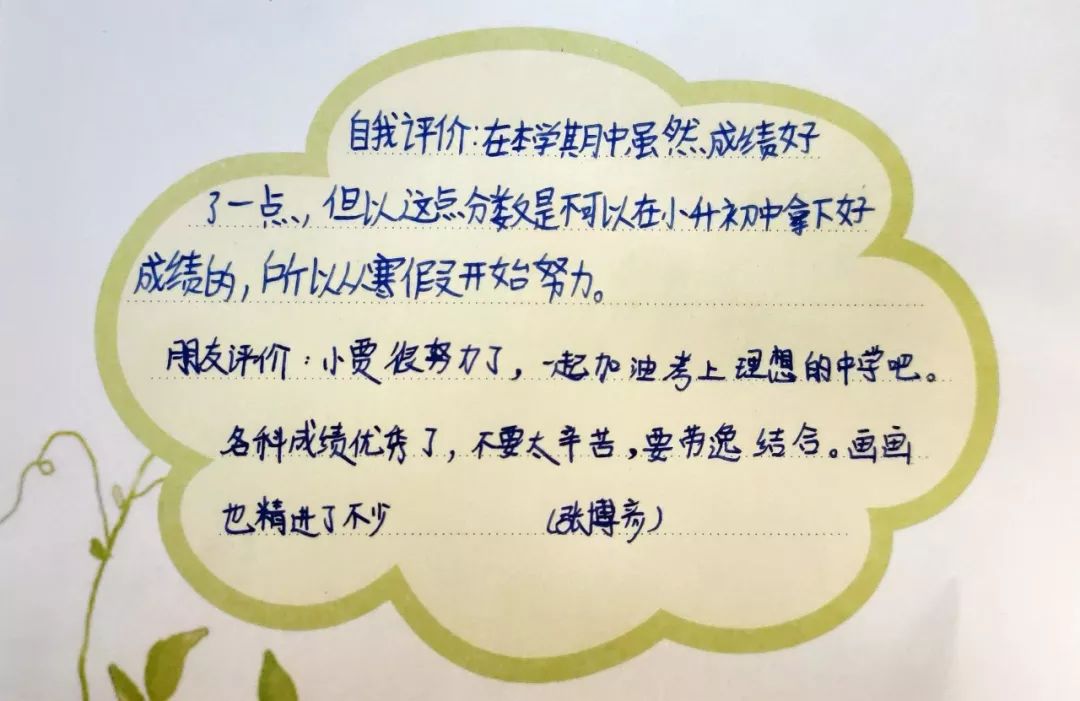 自我评价：在本学期中，虽然成绩好
了一点，但以这点分数是不可以在小升初中拿下好
成绩的，所以从寒假开始努力。
朋友评价：小贾很努力了，一起加油考上理想的中学吧。
各科成绩优秀了，不要太辛苦，要劳逸结合。画画
也精进了不少 （张博彦）